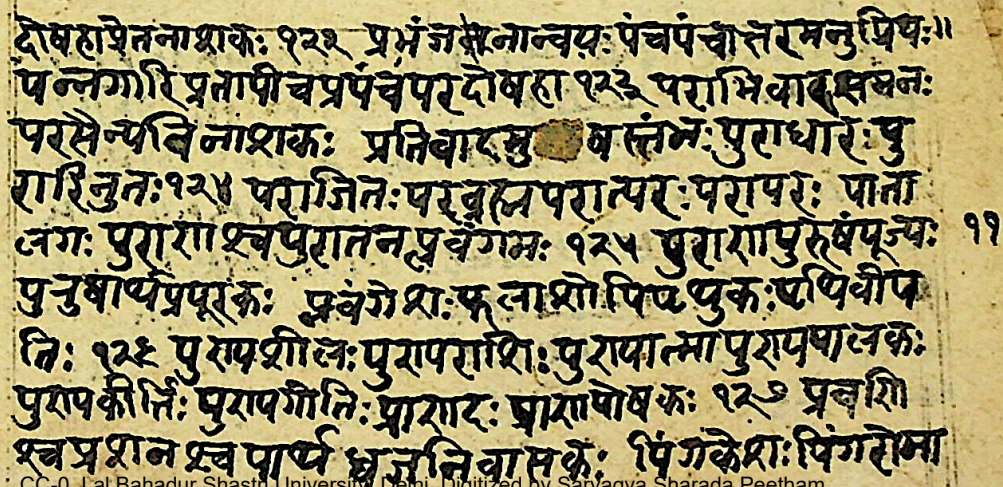 दोषहाप्रेतनाशकः १२२ प्रभंजनान्वयः पंचपंचोत्तरमनुप्रियः॥
पन्नगारिप्रतापीचप्रपंचपरदोषहा १२३ पराभिचार
परसैन्यविनाशकः प्रतिवादमु षस्तंभः पुराधारः पु
रारिनुतः १२४ पराजितः परंब्रह्मपरात्परः परापरः पाता
लगः पुराणश्चपुरातनप्लवंगमः १२५ पुराणपुरुषंपूज्यः ११
पुरुषार्थप्रपूरकः प्लवगेशः फलाशी पृथुकः पृथिवीप
तिः १२६ पुण्यशीलः पुण्यराशिः पुण्यात्मापुण्यपालकः
पुण्यकीर्तिः पुण्यगीतिः प्राणदः प्राणपोषकः १२७ प्रवी
श्चप्रशनश्चपार्थध्वजनिवासकः पिंगकेशः पिंगरोमा
CC-0. Lal Bahadur Shastri University, Delhi. Digitized by Sarvagya Sharada Peetham